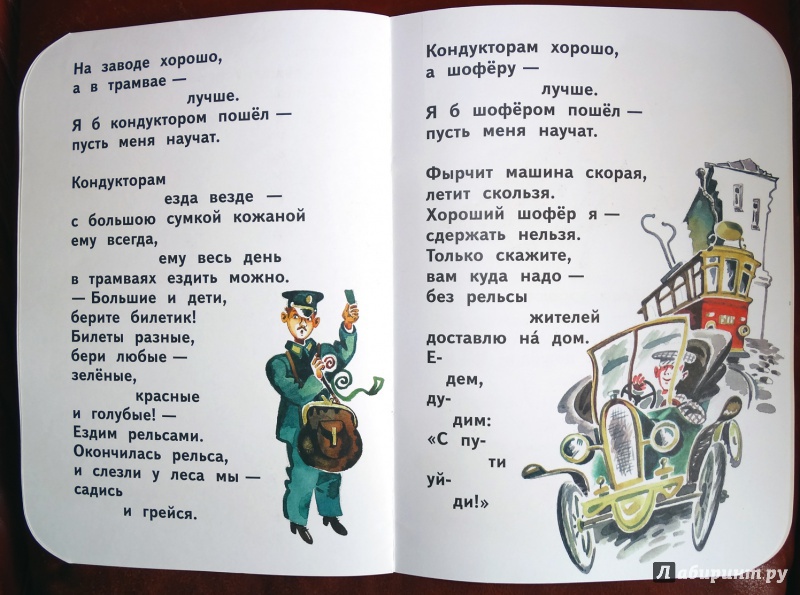 На заводе хорошо,
а в трамвае —
лучше.
Я б кондуктором пошёл —
пусть меня научат.
Кондукторам
езда везде —
с большою сумкой кожаной
ему всегда,
ему весь день
в трамваях ездить можно.
— Большие и дети,
берите билетик!
Билеты разные,
бери любые —
зелёные,
красные
и голубые! —
Ездим рельсами.
Окончилась рельса,
и слезли у леса мы —
садись
и грейся.
Кондукторам хорошо,
а шофёру —
лучше.
Я б шофёром пошёл —
пусть меня научат.
Фырчит машина скорая,
летит скользя.
Хороший шофёр я —
сдержать нельзя.
Только скажите,
вам куда надо —
без рельсы
жителей
доставлю на́ дом.
Е-
дем,
ду-
дим:
«С пу-
ти
уй-
ди!»
Лабиринт.ру